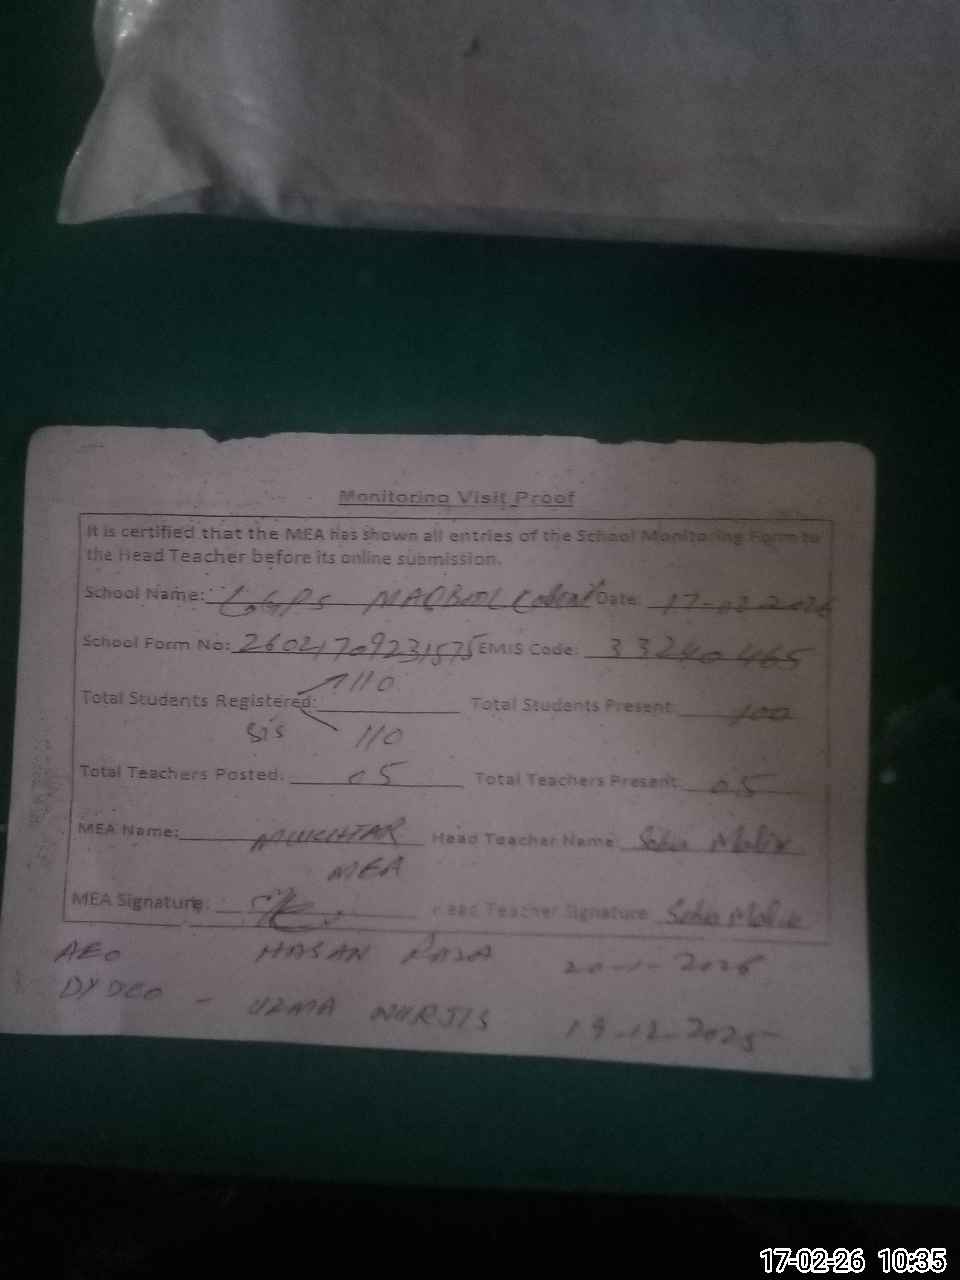 Monitoring Visit Proof
It is certified that the MEA has shown all entries of the School Monitoring Form to
the Head Teacher before its online submission.
School Name: GGPS MAQBOOL Date: 17-02-2026
School Form No: 26021709231575 EMIS Code: 33240465
Total Students Registered: 110 Total Students Present: 100
SIS 110
Total Teachers Posted: 05 Total Teachers Present: 05
MEA Name: MUKHTAR Head Teacher Name: Saba Malik
MEA
MEA Signature: Head Teacher Signature: Saba Malik
AEO HASAN RAZA 20-1-2026
DYDEO - UZMA NURJIS 19-12-2025
17-02-26 10:35